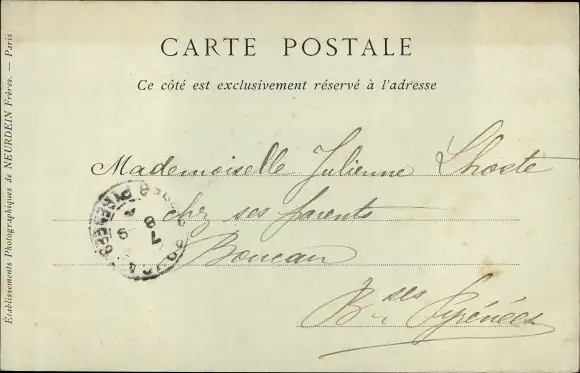 CARTE POSTALE
Ce côté est exclusivement réservé à l'adresse
Mademoiselle Julienne Lhoste
chez ses parents
Boucau
Bses Pyrénées
Etablissements Photographiques de NEURDEIN Frères. — Paris